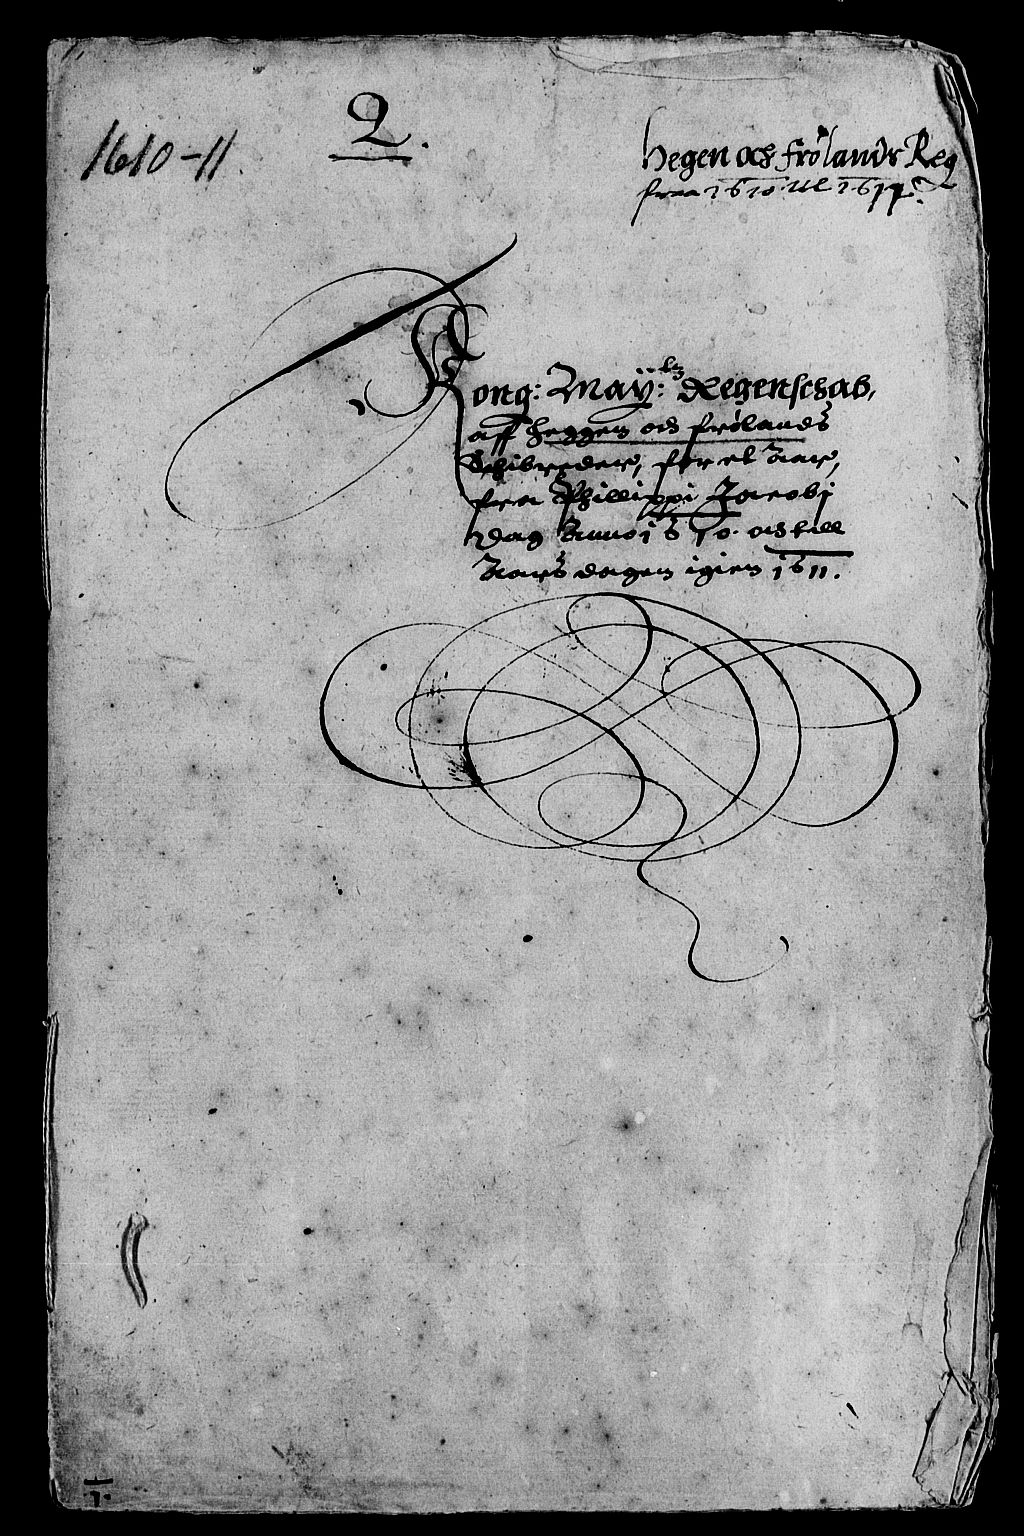 1610-11.
2.
Hegen och Frölandz Reg
fraa 1610 til 1611.
Kong: Maÿ:tz Regenschab,
aff Heggen och Frölands
Schibreder, for et Aar,
fra Phillippi Jacobj
Dag Anno 1610. och till
Aars dagen igien 1611.
1.